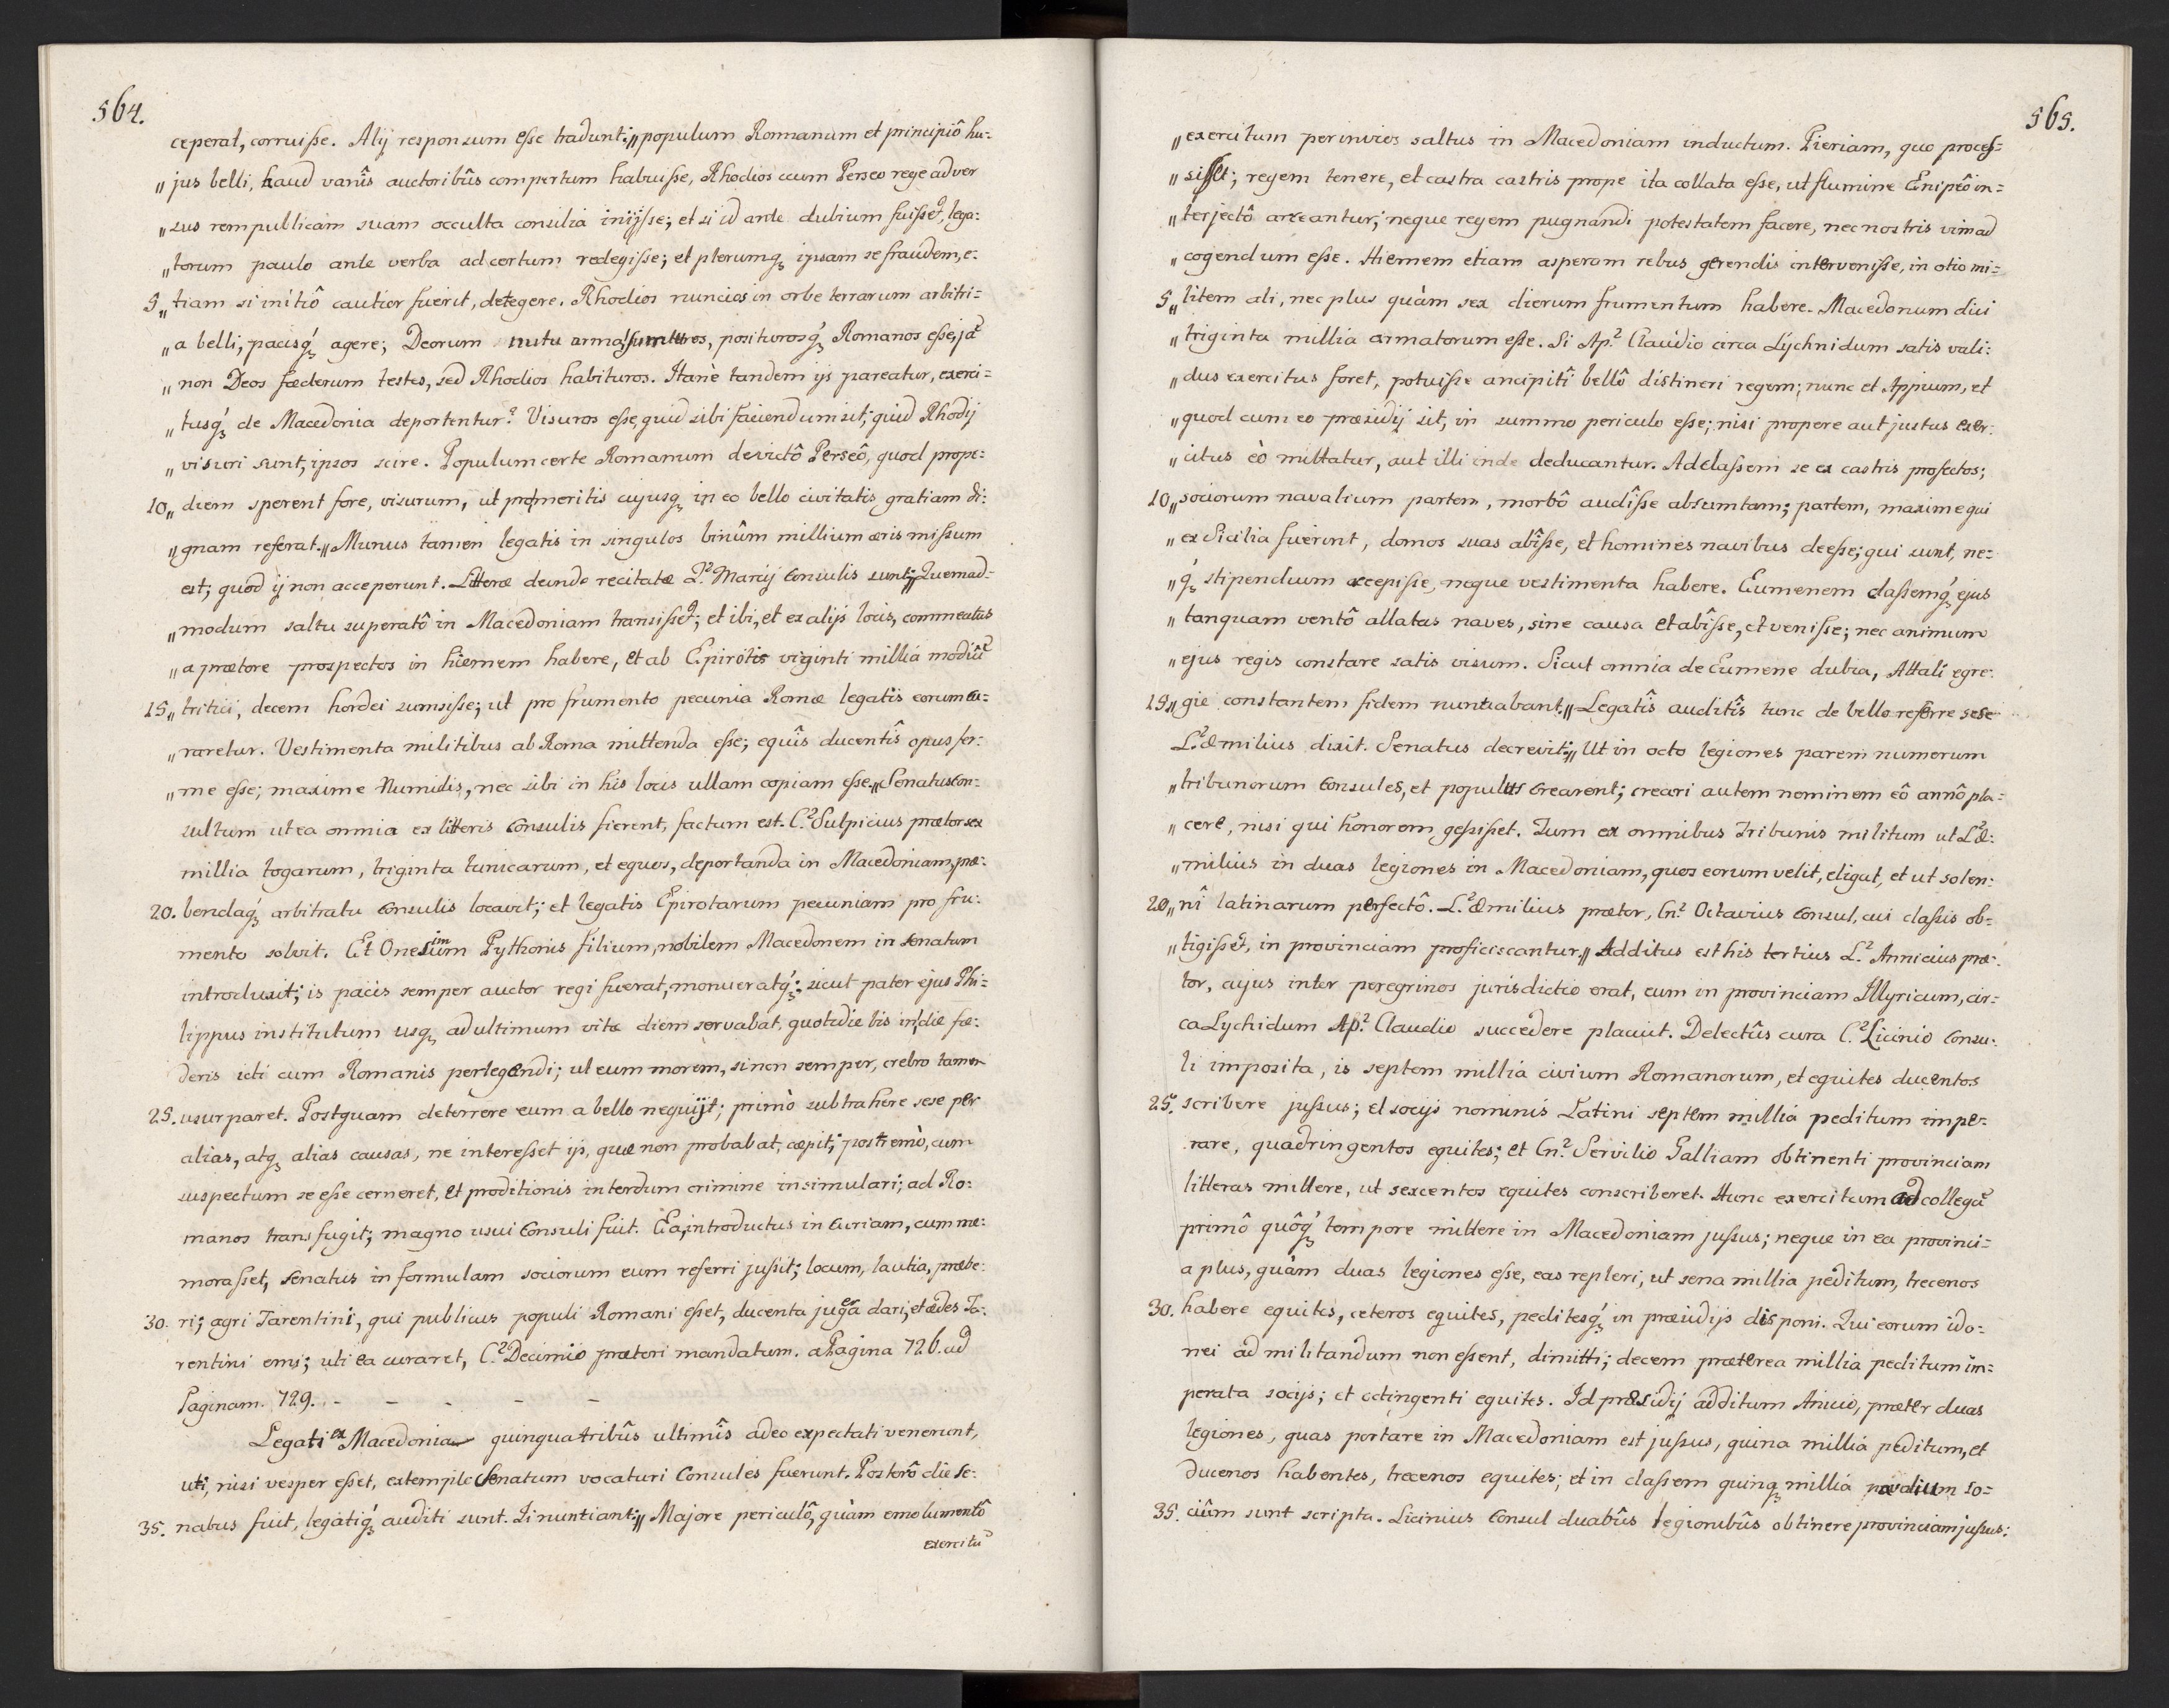 564.
ceperat, corruiſse. Alÿ responsum eſse tradunt; „populum Romanum et principiô hu=
„jus belli, haud vanîs auctoribûs compertum habuiſse, Rhodios cum Perseo rege adver
„sus rempublicam suam occulta consilia inijſse; et si id ante dubium fuiſset, lega=
„torum paulo ante verba ad certum redegiſse; et plerumq3 ipsam se fraudem, e=
5„tiam si initiô cautior fuerit, detegere. Rhodios nuncios in orbe terrarum arbitri=
„a belli, pacisq́3 agere; Deorum nutu arma sumturos, posituros q́3 Romanos eſse, jã
„non Deos fæderum testes, sed Rhodios habituros. Itanè tandem ijs pareatur, exerci=
„tusq́3 de Macedonia deportentur? Visuros eſse, quid sibi faciendum sit; quid Rhodÿ
„visuri sunt, ipsos scire. Populum certe Romanum devictô Perseô, quod prope=
10„diem sperent fore, visurum, ut pro meritis cujusq3 in eo bello civitatis gratiam di=
„gnam referat. „Munus tamen legatis in singulos binûm millium æris miſsum
est; quod ij non acceperunt. Litteræ deinde recitatæ Q.2 Marcÿ consulis sunt; „Quemad=
„modum saltu superatô in Macedoniam transiſset; et ibi, et ex alijs locis, commeatus
„a prætore prospectos in hiemem habere, et ab Epirotis viginti millia modiũ
15„tritici, decem hordei sumsiſse; ut pro frumento pecunia Romæ legatis eorum cu=
„raretur. Vestimenta militibus ab Roma mittenda eſse; equîs ducentîs opus fer=
„me eſse; maxime Numidis, nec sibi in his locis ullam copiam eſse. „Senatuscon=
sultum ut ea omnia ex litteris consulis fierent, factum est. C.2 Sulpicius prætor sex
millia togarum, triginta tunicarum, et equos, deportanda in Macedoniam, præ=
20. bendaq́3 arbitratu consulis locavit; et legatis Epirotarum pecuniam pro fru=
mento solvit. Et Onesimum Pythonis filium, nobilem Macedonem in senatum
introduxit; is pacis semper auctor regi fuerat, monueratq́3: sicut pater ejus Phi=
lippus institutum usq3 ad ultimum vitæ diem servabat, quotidie bis in die fæ=
deris icti cum Romanis perlegendi; ut eum morem, si non semper, crebro tamen
25. usurparet. Postquam deterrere eum a bello nequijt; primò subtrahere sese per
alias, atq3 alias causas, ne intereſset ijs, quæ non probabat, cæpit; postremò, cum
suspectum se eſse cerneret, et proditionis interdum crimine insimulari; ad Ro=
manos transfugit; magno usui consuli fuit. Ea, introductus in curiam, cum me=
moraſset, senatus in formulam sociorum eum referri juſsit; locum, lautia, præbe=
30. ri; agri Tarentini, qui publicus populi Romani eſset, ducenta jugera dari, et ædes Ta=
rentini emi; uti ea curaret, C.2 Decimio prætori mandatum. a Pagina 726. ad
Paginam. 729. - - - - -
Legati ex Macedonia quinquatribûs ultimîs adeo expectati venerunt,
uti, nisi vesper eſset, extemple senatum vocaturi Consules fuerunt. Posterô die se=
35. natus fuit, legatiq́3 auditi sunt. Ii nuntiant; „Majore periculô, quàm emolumentô
exercitũ
565.
„exercitum per invios saltus in Macedoniam inductum. Pieriam, quo proceſ=
„siſset; regem tenere, et castra castris prope ita collata eſse, ut flumine Enipêo in=
„terjectô arceantur; neque regem pugnandi potestatem facere, nec nostris vim ad
„cogendum eſse. Hiemem etiam asperam rebus gerendis interveniſse, in otio mi=
5„litem ali, nec plus quàm sex dierum frumentum habere. Macedonum dici
„triginta millia armatorum eſse. Si Ap.2 Claudio circa Lychnidum satis vali=
„dus exercitus foret, potuiſse ancipitî bellô distineri regem; nunc et Appium, et
„quod cum eo præsidÿ sit, in summo periculo eſse; nisi propere aut justus exer=
„citus eò mittatur, aut illi inde deducantur. Ad claſsem se ex castris profectos;
10„sociorum navalium partem, morbô audîſse absumtam; partem, maxime qui
„ex Sicilia fuerint, domos suas abîſse, et homines navibus deeſse; qui sunt, ne=
„q́3 stipendium accepiſse, neque vestimenta habere. Eumenem claſsemq́3 ejus
„tanquam ventô allatas naves, sine causa et abîſse, et veniſse; nec animum
„ejus regis constare satis visum. Sicut omnia de Eumene dubia, Attali egre=
15„gie constantem fidem nuntiabant. „Legatîs auditîs tunc de bello referre sese
L.2 Æmilius dixit. Senatus decrevit; „Ut in octo legiones parem numerum
„tribunorum consules, et populus crearent; creari autem neminem eô annô pla=
„cere, nisi qui honorem geſsiſset. Tum ex omnibus tribunis militum ut L.2 Æ=
„milius in duas legiones in Macedoniam, quos eorum velit, eligat, et ut solen=
20„nî latinarum perfectô. L.2 Æmilius prætor, Cn.2 Octavius consul, cui claſsis ob=
„tigiſset, in provinciam proficiscantur. „Additus est his tertius L.2 Annicius præ=
tor, cujus inter peregrinos jurisdictio erat, eum in provinciam Illyricum, cir=
ca Lychidum Ap.2 Claudio succedere placuit. Delectûs cura C.2 Licinio consu=
li imposita, is septem millia civium Romanorum, et equites ducentos
25. scribere juſsus; et socijs nominis Latini septem millia peditum impe=
rare, quadringentos equites; et Cn.2 Servilio Galliam obtinenti provinciam
litteras mittere, ut sexcentos equites conscriberet. Hunc exercitum ad collegã
primô quôq́3 tempore mittere in Macedoniam juſsus; neque in ea provinci=
a plus, quàm duas legiones eſse, eas repleri, ut sena millia peditum, trecenos
30. habere equites, ceteros equites, peditesq́3 in præsidijs disponi. Qui eorum ido=
nei ad militandum non eſsent, dimitti; decem præterea millia peditum im=
perata socijs; et octingenti equites. Id præsidÿ additum Anicio, præter duas
legiones, quas portare in Macedoniam est juſsus, quina millia peditum, et
ducenos habentes, trecenos equites; et in claſsem quinq3 millia navalium so=
35. ciûm sunt scripta. Licinius consul duabûs legionibûs obtinere provinciam juſsus: